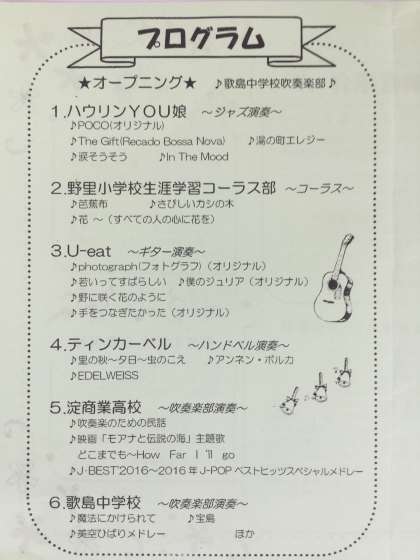 プログラム
★オープニング★ ♪歌島中学校吹奏楽部♪
1.ハウリンYOU娘 ～ジャズ演奏～
♪POCO(オリジナル)
♪The Gift(Recado Bossa Nova) ♪湯の町エレジー
♪涙そうそう ♪In The Mood
2.野里小学校生涯学習コーラス部 ～コーラス～
♪芭蕉布 ♪さびしいカシの木
♪花 ～（すべての人の心に花を）
3.U-eat ～ギター演奏～
♪photograph(フォトグラフ)（オリジナル）
♪若いってすばらしい ♪僕のジュリア（オリジナル）
♪野に咲く花のように
♪手をつなぎたかった（オリジナル）
4.ティンカーベル ～ハンドベル演奏～
♪里の秋～夕日～虫のこえ ♪アンネン・ポルカ
♪EDELWEISS
5.淀商業高校 ～吹奏楽部演奏～
♪吹奏楽のための民話
♪映画「モアナと伝説の海」主題歌
どこまでも～How Far I 'll go
♪J-BEST'2016～2016年J-POPベストヒッツスペシャルメドレー
6.歌島中学校 ～吹奏楽部演奏～
♪魔法にかけられて ♪宝島
♪美空ひばりメドレー ほか